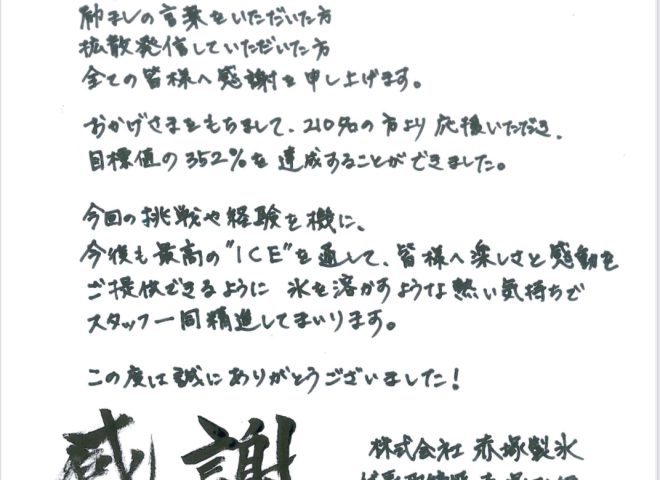 励ましの言葉をいただいた方
拡散発信していただいた方
全ての皆様へ感謝を申し上げます。
おかげさまをもちまして、210名の方より応援いただき、
目標値の352%を達成することができました。
今回の挑戦や経験を機に、
今後も最高の"ICE"を通して、皆様へ楽しさと感動を
ご提供できるように 氷を溶かすような熱い気持ちで
スタッフ一同精進してまいります。
この度は誠にありがとうございました!
感謝
株式会社 赤塚製氷